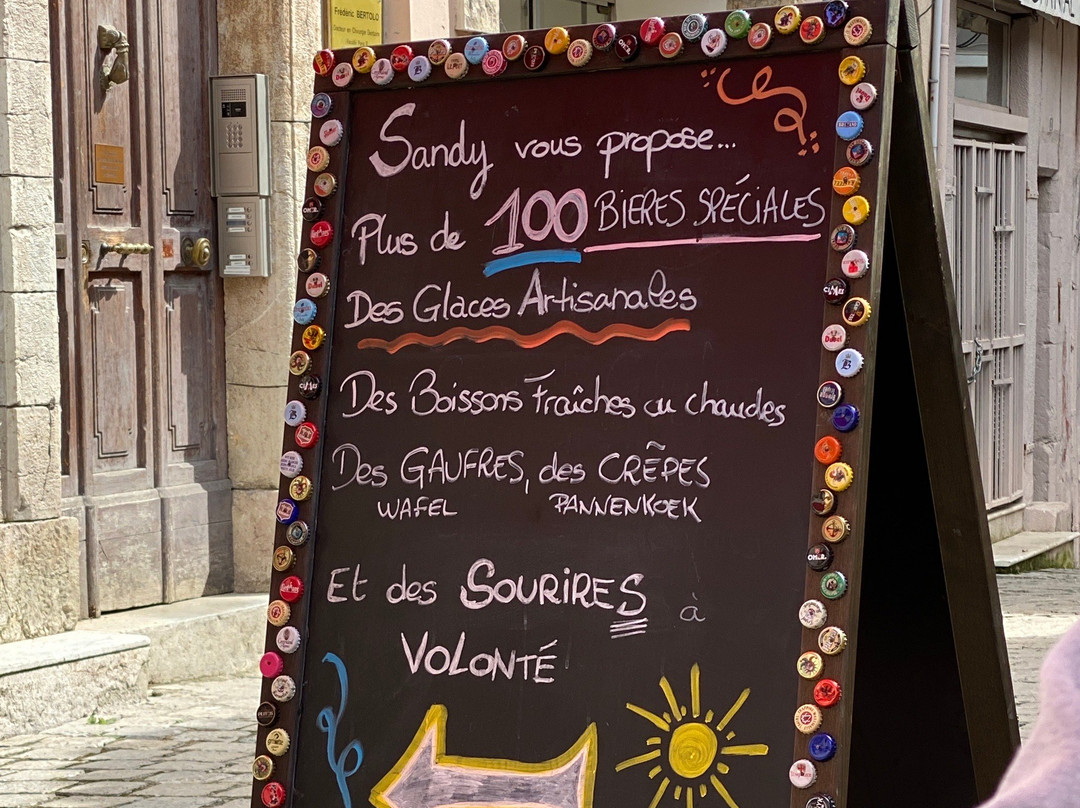 Frédéric BERTOLO
Sandy vous propose...
Plus de 100 BIERES SPÉCIALES
Des Glaces Artisanales
Des Boissons Fraîches ou chaudes
Des GAUFRES, des CRÊPES
WAFEL PANNENKOEK
Et des SOURIRES à
VOLONTÉ